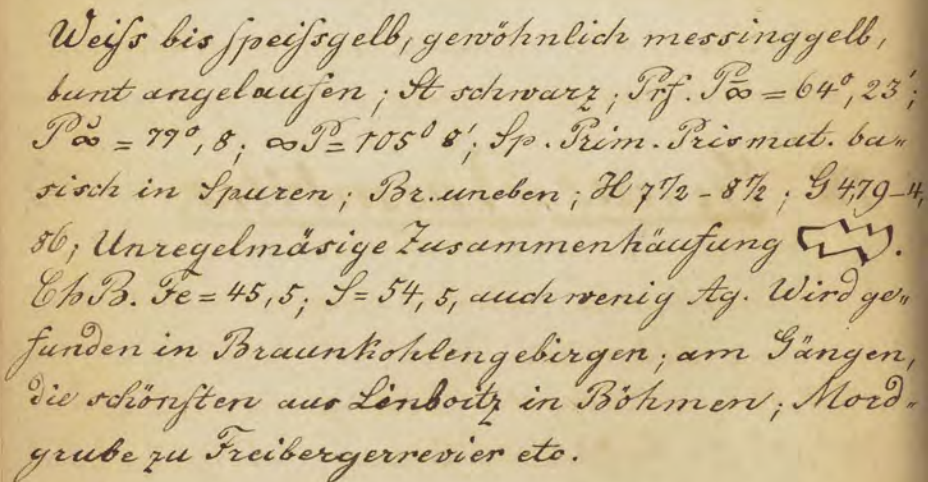 Weiſs bis ſpeiſsgelb, gewöhnlich messinggelb,
bunt angelaufen; St schwarz; Prf. P̄∞ = 64°, 23';
P̆∞ = 77°, 8; ∞P = 105° 8'; Sp. Prim. Prismat. ba„
sisch in Spuren; Br. uneben; H 7½ - 8½; G 4,79-4,
86; Unregelmäsige Zusammenhäufung.
Ch B. Fe = 45,5; S = 54,5, auch wenig Ag. Wird ge„
funden in Braunkohlengebirgen; am Gängen,
die schönſten aus in Böhmen; Mord„
grube zu Freibergerrevier etc.